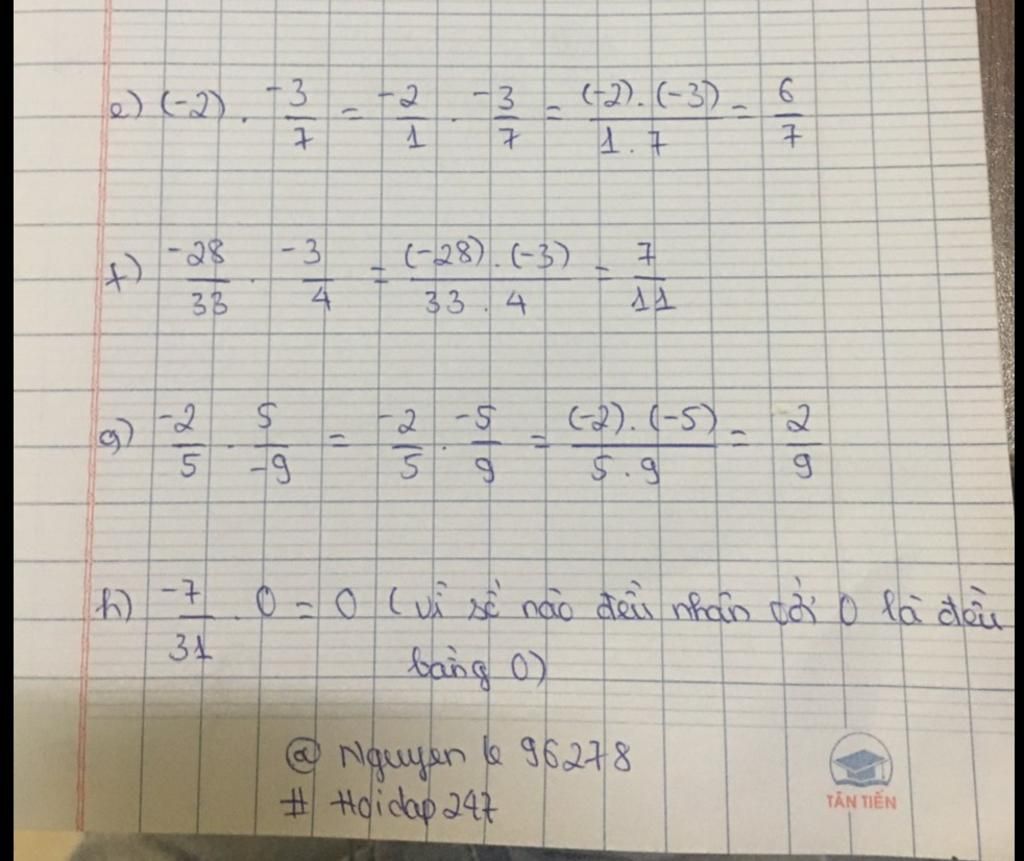 e) (-2) . -3/7 = -2/1 . -3/7 = (-2).(-3)/1.7 = 6/7
f) -28/33 . -3/4 = (-28).(-3)/33.4 = 7/11
g) -2/5 . 5/-9 = -2/5 . -5/9 = (-2).(-5)/5.9 = 2/9
h) -7/31 . 0 = 0 (vì số nào đều nhân với 0 là đều
bằng 0)
@ Nguyen le 96278
# Hoidap247
TÂN TIẾN